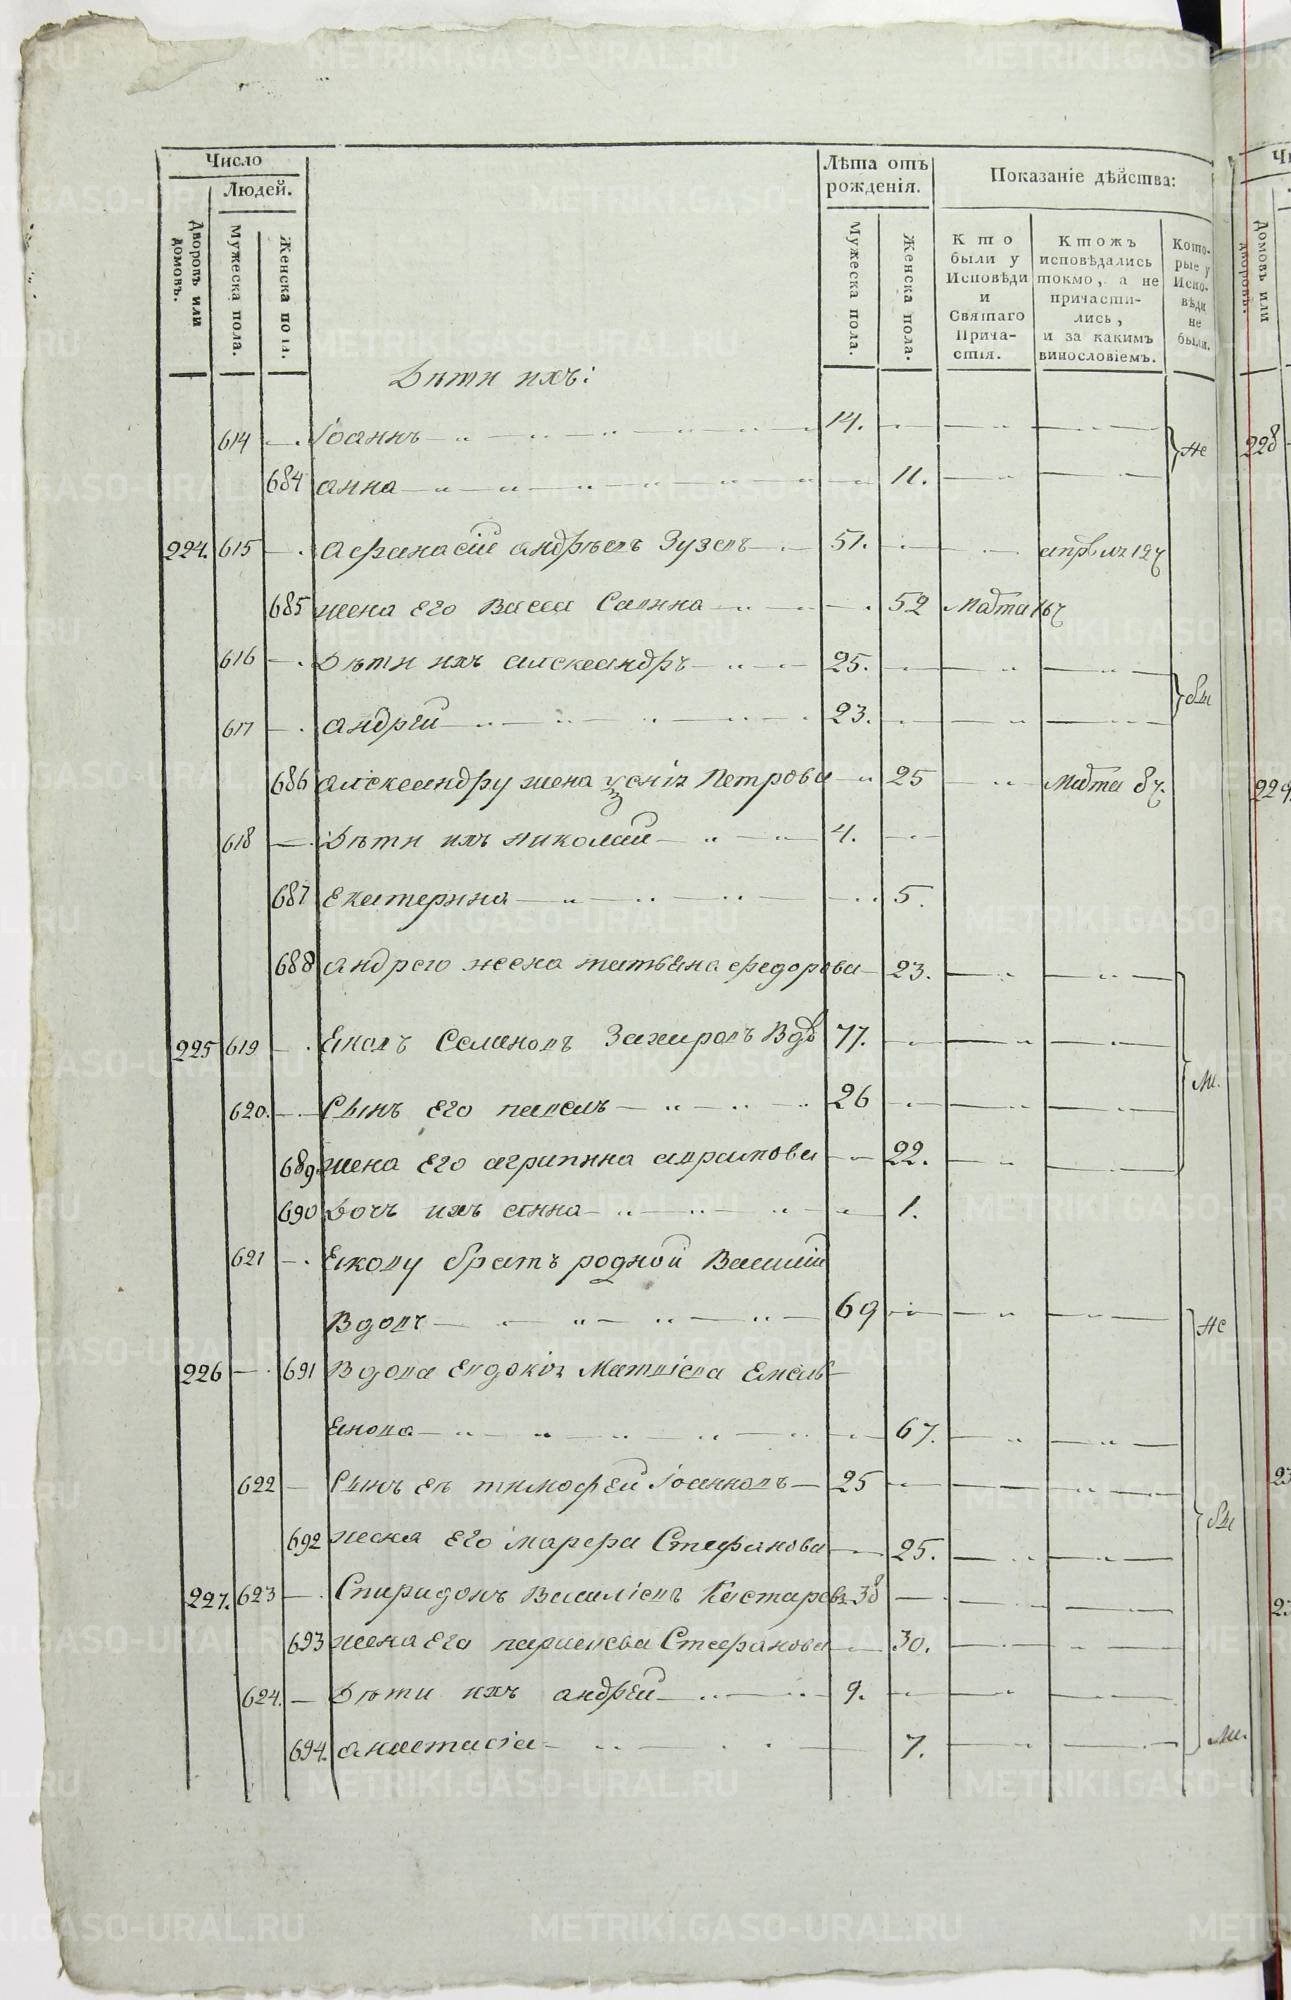 Число
Людей.
Дворовъ или домовъ.
Мужеска пола.
Женска пола.
Лѣта отъ рожденія.
Мужеска пола.
Женска пола.
Показаніе дѣйства:
Кто были у Исповѣди и Святаго Прича-стія.
Ктожъ исповѣдались токмо, а не причасти-лись, и за какимъ винословіемъ.
Кото-рые у Испо-вѣди не были.
Дѣти ихъ:
614 — Іоаннъ — 14.
684 анна — 11. не
224. 615 — Афанасій андрѣевъ Зуевъ — 51.
685 жена Его Васса Савина — 52 Марта 16
616 — Дѣти ихъ александръ — 25.
617 — андрей — 23. бы
686 александру жена Петрова — 25 Марта 8
618 — Дѣти ихъ николай — 4.
687 Екатерина — 5.
688 андрею жена татьяна федорова — 23.
225 619 — Яковъ Семеновъ Захаровъ Вдв 77.
620. — Сынъ его павелъ — 26 м.
689 жена Его агрипина аврамова — 22.
690 Дочь ихъ анна — 1.
621 — Якову братъ родной Василій
Вдовъ — 69 не
226 — 691 Вдова Евдокія Матвіева Емель-
янова — 67.
622 — Сынъ ея тимофей Іоанновъ — 25
692 жена Его марфа Стефанова — 25. бы
227. 623 — Спиридонъ Василіевъ Кастаровъ 38
693 жена Его парасковья Стефанова — 30.
624. — Дѣти ихъ андрей — 9.
694. анастасіа — 7. м.
Чи
Домовъ или дворовъ.
228
229.
23
23
METRIKI.GASO-URAL.RU